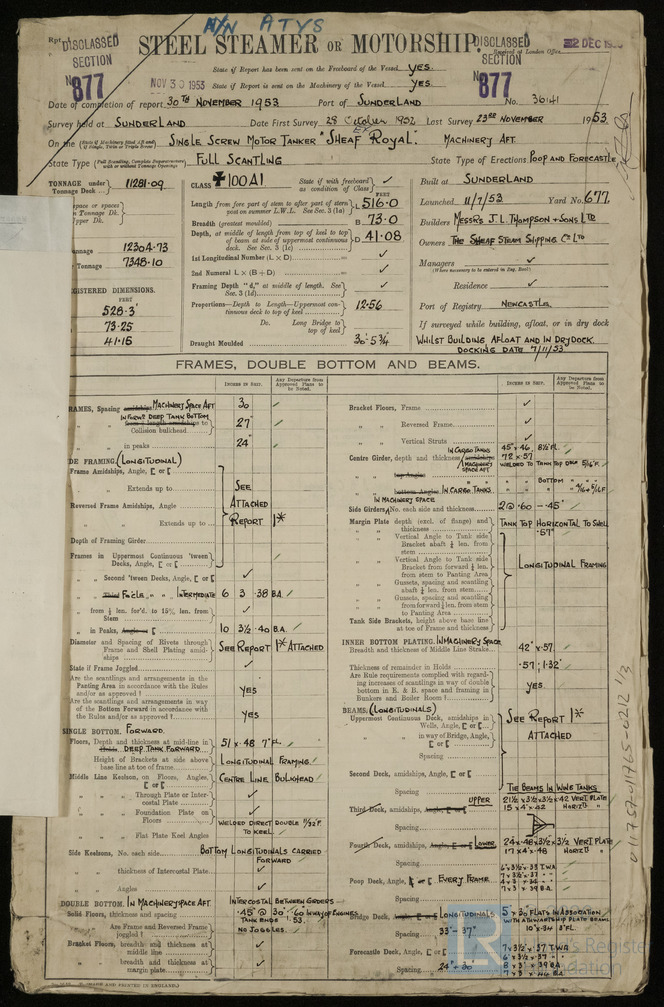 A/N ATYS
Rpt.
DISCLASSED SECTION
No 877
STEEL STEAMER OR MOTORSHIP.
DISCLASSED SECTION
No 877
Received at London Office
2 DEC
State if Report has been sent on the Freeboard of the Vessel YES.
NOV 30 1953
State if Report is sent on the Machinery of the Vessel YES.
Date of completion of report 30TH NOVEMBER 1953 Port of SUNDERLAND No. 36141
Survey held at SUNDERLAND Date First Survey 28 October 1952 Last Survey 23RD NOVEMBER 1953.
On the SINGLE SCREW MOTOR TANKER "SHEAF ROYAL". MACHINERY AFT.
State Type FULL SCANTLING State Type of Erections POOP AND FORECASTLE
TONNAGE under Tonnage Deck 11281.09
Tonnage 12304.73
Tonnage 7348.10
REGISTERED DIMENSIONS.
FEET
528.3'
73.25
41.15
CLASS ✠100A1 State if with freeboard as condition of Class ✓
FEET
Length from fore part of stem to after part of stern post on summer L.W.L. See Sec. 3 (1a) L 516.0
Breadth (greatest moulded) B 73.0
Depth, at middle of length from top of keel to top of beam at side of uppermost continuous deck. See Sec. 3 (1c) D 41.08
1st Longitudinal Number (L × D) ✓
2nd Numeral L × (B + D) ✓
Framing Depth "d," at middle of length. See Sec. 3 (1d) ✓
Proportions—Depth to Length—Uppermost continuous deck to top of keel 12.56
Do. Long Bridge to top of keel
Draught Moulded 30'-5¾"
Built at SUNDERLAND
Launched 11/7/53 Yard No. 677.
Builders MESSRS J. L. THOMPSON & SONS LTD
Owners THE SHEAF STEAM SHIPPING CO LTD
Managers ✓
(Where necessary to be entered in Reg. Book)
Residence ✓
Port of Registry NEWCASTLE.
If surveyed while building, afloat, or in dry dock
WHILST BUILDING, AFLOAT AND IN DRYDOCK.
DOCKING DATE 7/11/53
FRAMES, DOUBLE BOTTOM AND BEAMS.
INCHES IN SHIP.
Any Departure from Approved Plans to be Noted.
FRAMES, Spacing MACHINERY SPACE AFT 30
IN FORWD DEEP TANK BOTTOM
Collision bulkhead 27"
" " in peaks 24"
SIDE FRAMING. (LONGITUDINAL)
Frame Amidships, Angle, [ or [
" " Extends up to SEE
Reversed Frame Amidships, Angle ATTACHED
" " Extends up to REPORT 1*
Depth of Framing Girder
Frames in Uppermost Continuous 'tween Decks, Angle, [ or [
" " Second 'tween Decks, Angle, [ or [ ✓
" " FO'CLE " " INTERMEDIATE 6 3 .38 B.A.
" " from ¼ len. for'd. to 15% len. from Stem ✓
" " in Peaks, Angle or [ 10 3½ .40 B.A.
Diameter and Spacing of Rivets through Frame and Shell Plating amidships SEE REPORT 1* ATTACHED
State if Frame Joggled ✓
Are the scantlings and arrangements in the Panting Area in accordance with the Rules and/or as approved? YES
Are the scantlings and arrangements in way of the Bottom Forward in accordance with the Rules and/or as approved? YES
SINGLE BOTTOM. FORWARD.
Floors, Depth and thickness at mid-line in DEEP TANK FORWARD 51 × .48 7" FL.
Height of Brackets at side above base line at toe of frame LONGITUDINAL FRAMING
Middle Line Keelson, on Floors, Angles, [ or [ CENTRE LINE BULKHEAD
" " Through Plate or Intercostal Plate ✓
" " Foundation Plate on Floors ✓
" " Flat Plate Keel Angles WELDED DIRECT DOUBLE 11/32" F. TO KEEL
Side Keelsons, No. each side BOTTOM LONGITUDINALS CARRIED FORWARD
" " thickness of Intercostal Plate ✓
" " Angles ✓
DOUBLE BOTTOM. IN MACHINERY SPACE AFT. INTERCOSTAL BETWEEN GIRDERS
Solid Floors, thickness and spacing .45" @ 30" .60" IN WAY OF ENGINES
TANK ENDS .53
Are Frame and Reversed Frame joggled? NO JOGGLES.
Bracket Floors, breadth and thickness at middle line ✓
" " breadth and thickness at margin plate ✓
INCHES IN SHIP.
Any Departure from Approved Plans to be Noted.
Bracket Floors, Frame ✓
" " Reversed Frame ✓
" " Vertical Struts ✓
Centre Girder, depth and thickness IN CARGO TANKS 45" × .46 8½" FL.
MACHINERY SPACE AFT 72 × .57 WELDED TO TANK TOP DBLE 5/16" F.
top Angles
bottom Angles IN CARGO TANKS " " BOTTOM "
IN MACHINERY SPACE
Side Girders, No. each side and thickness 2 @ .60 - .45"
Margin Plate depth (excl. of flange) and thickness TANK TOP HORIZONTAL TO SHELL .57"
" " Vertical Angle to Tank side Bracket abaft ¼ len. from stem
" " Vertical Angle to Tank side Bracket from forward ¼ len. from stem to Panting Area LONGITUDINAL FRAMING
" " Gussets, spacing and scantling abaft ¼ len. from stem
" " Gussets, spacing and scantling from forward ¼ len. from stem to Panting Area
Tank Side Brackets, height above base line at toe of Frame and thickness
INNER BOTTOM PLATING. IN MACHINERY SPACE
Breadth and thickness of Middle Line Strake 42" × .57
Thickness of remainder in Holds .57 ; 1.32"
Are Rule requirements complied with regarding increases of scantlings in way of double bottom in E. & B. space and framing in Bunkers and Boiler Room? YES
BEAMS. (LONGITUDINALS)
Uppermost Continuous Deck, amidships in Wells, Angle, [ or [ SEE REPORT 1*
" " in way of Bridge, Angle, [ or [ ATTACHED
Spacing
Second Deck, amidships, Angle, [ or [
Spacing TIE BEAMS IN WING TANKS
Third Deck, amidships, Angle, [ or [ UPPER 21½ × 3½ × 3½ × .42 VERT PLATE
15 × 4" × .42 HORIZ'L "
Spacing
Fourth Deck, amidships, Angle, [ or [ LOWER 24 × .48 × 3½ × 3½ VERT PLATE
17 × 4" × .48 HORIZ'L "
Spacing
Poop Deck, Angle, [ or [ EVERY FRAME
Spacing
Bridge Deck, Angle, [ or [ LONGITUDINALS 5" × 30 FLATS IN ASSOCIATION WITH ATHWARTSHIP PLATE BEAMS
Spacing 33"-37" 10" × .34 3" FL
Forecastle Deck, Angle, [ or [
Spacing 24" + 30"
011757-011765-0212 1/3
LR
Lloyd's Register Foundation